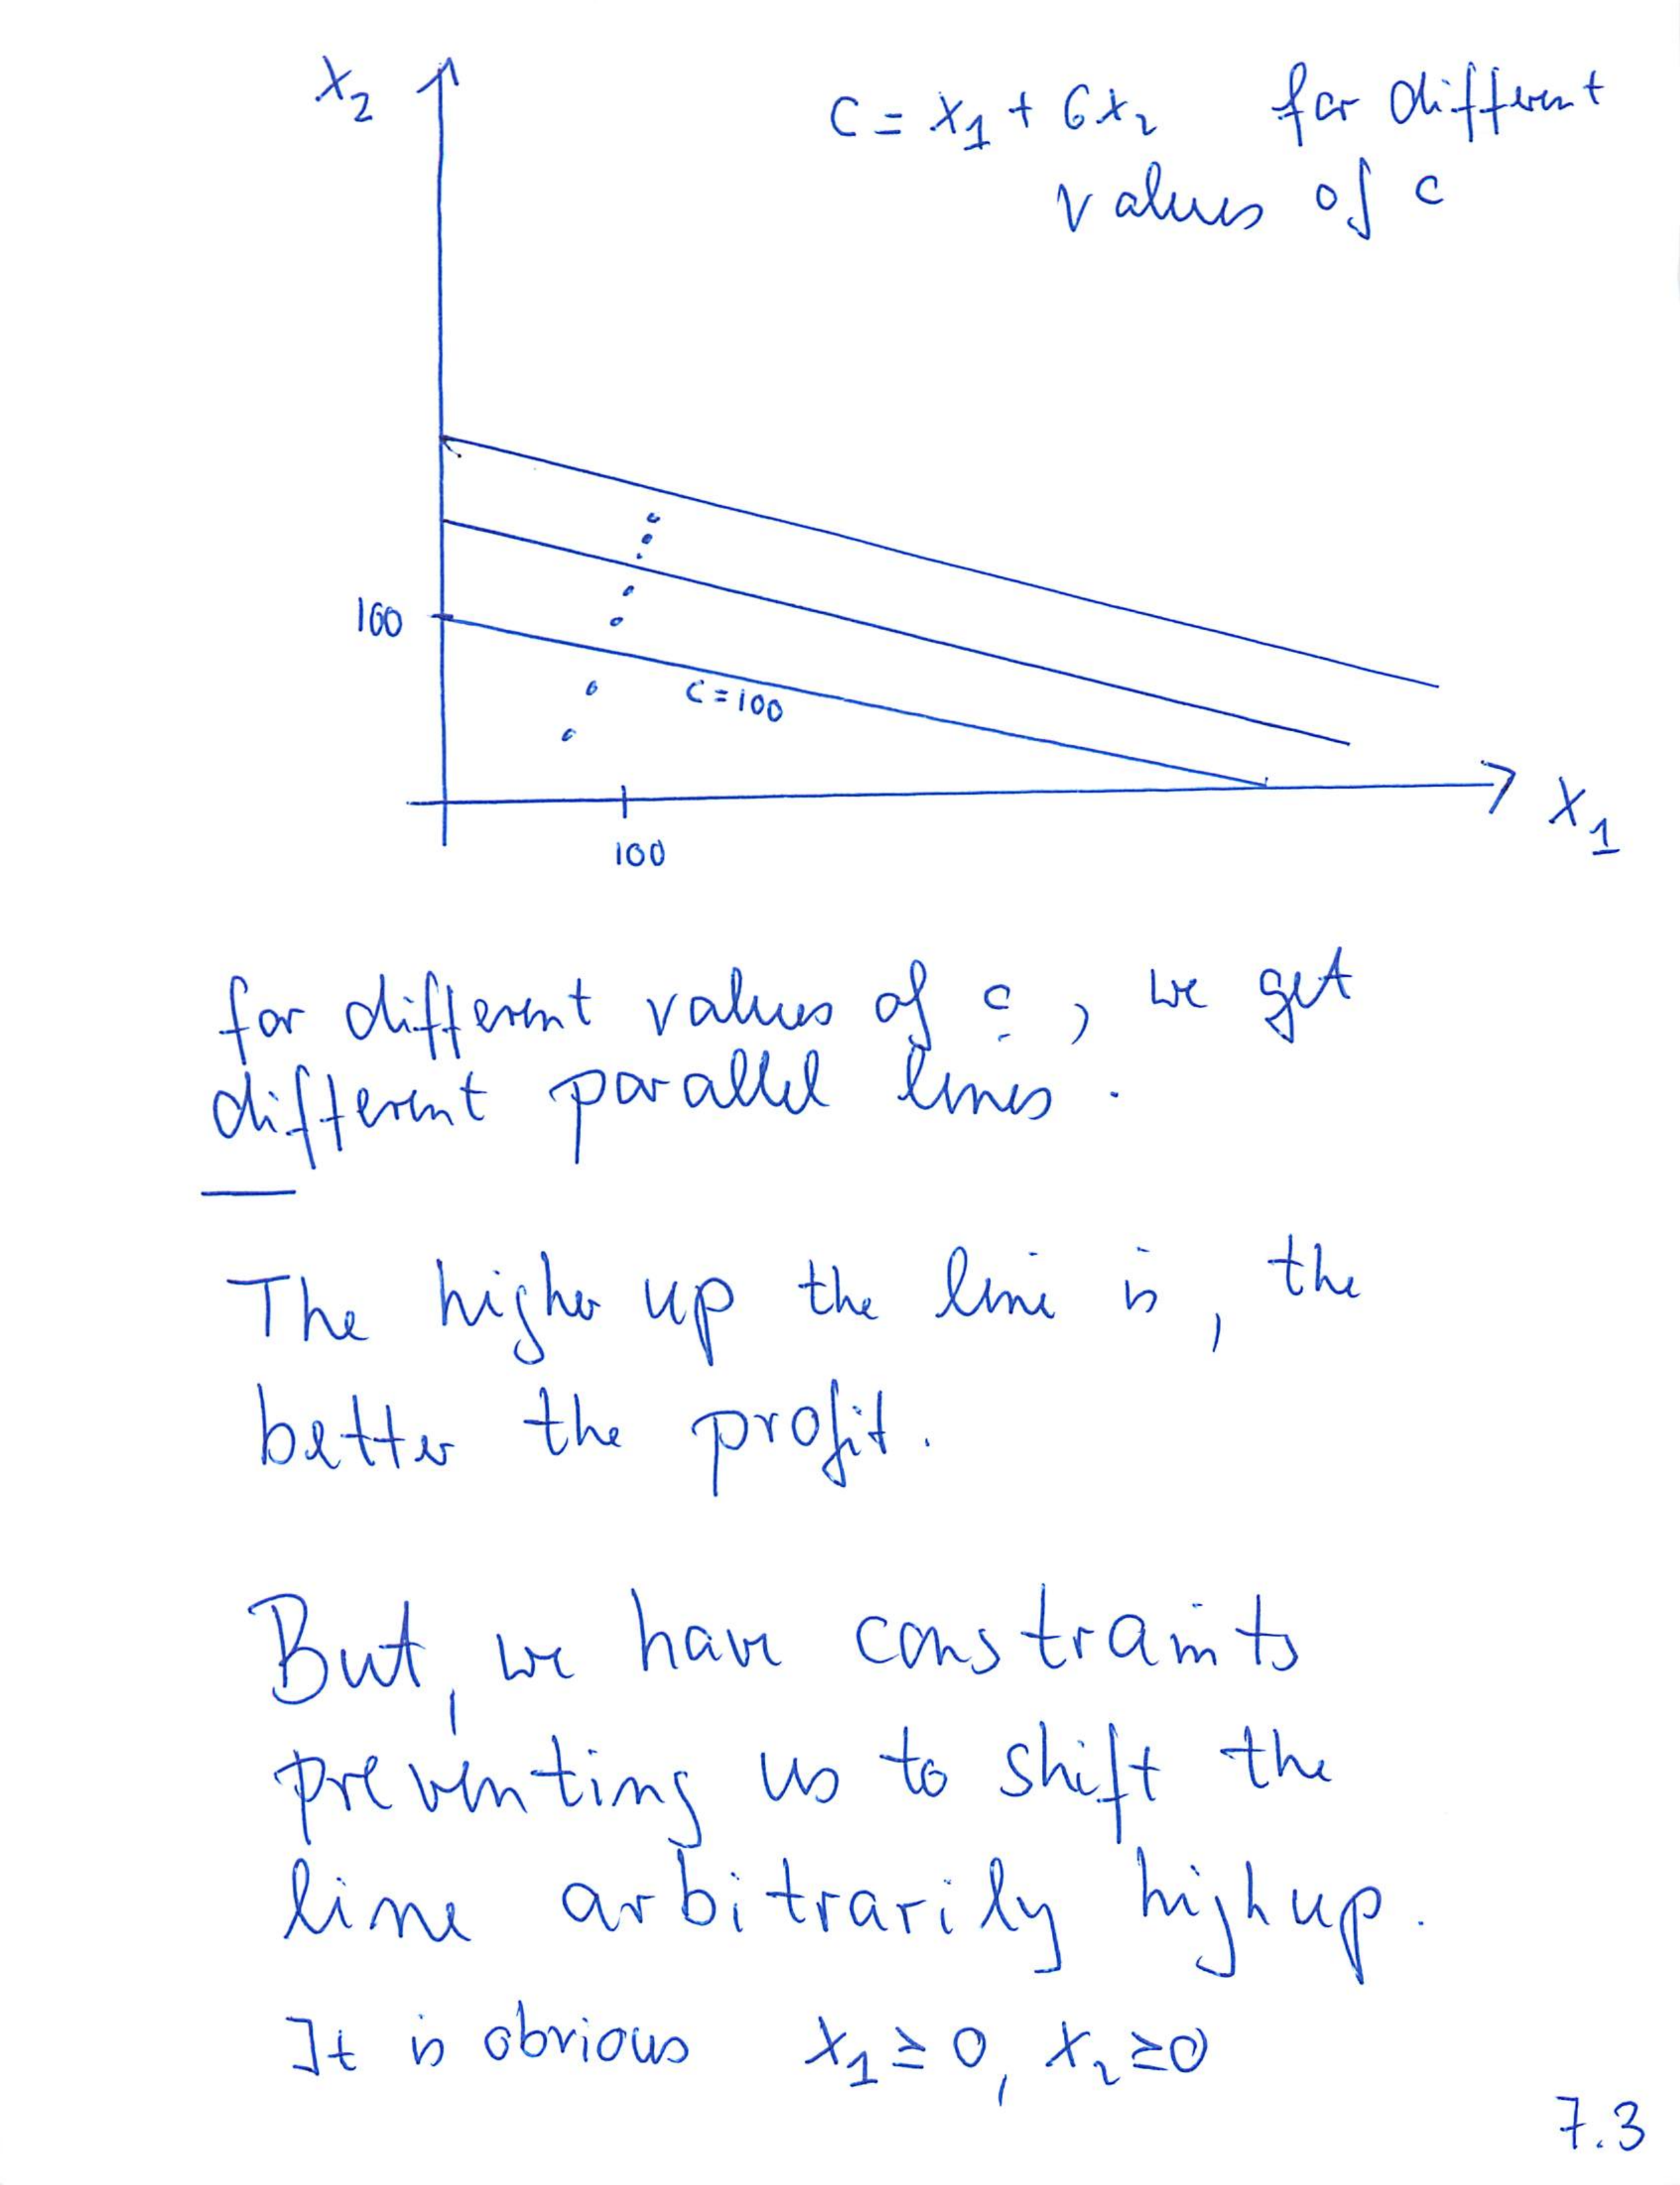 x₂
c = x₁ + 6x₂ for different
values of c
100
c = 100
100
x₁
for different values of c, we get
different parallel lines.
The higher up the line is, the
better the profit.
But, we have constraints
preventing us to shift the
line arbitrarily high up.
It is obvious x₁ ≥ 0, x₂ ≥ 0
7.3